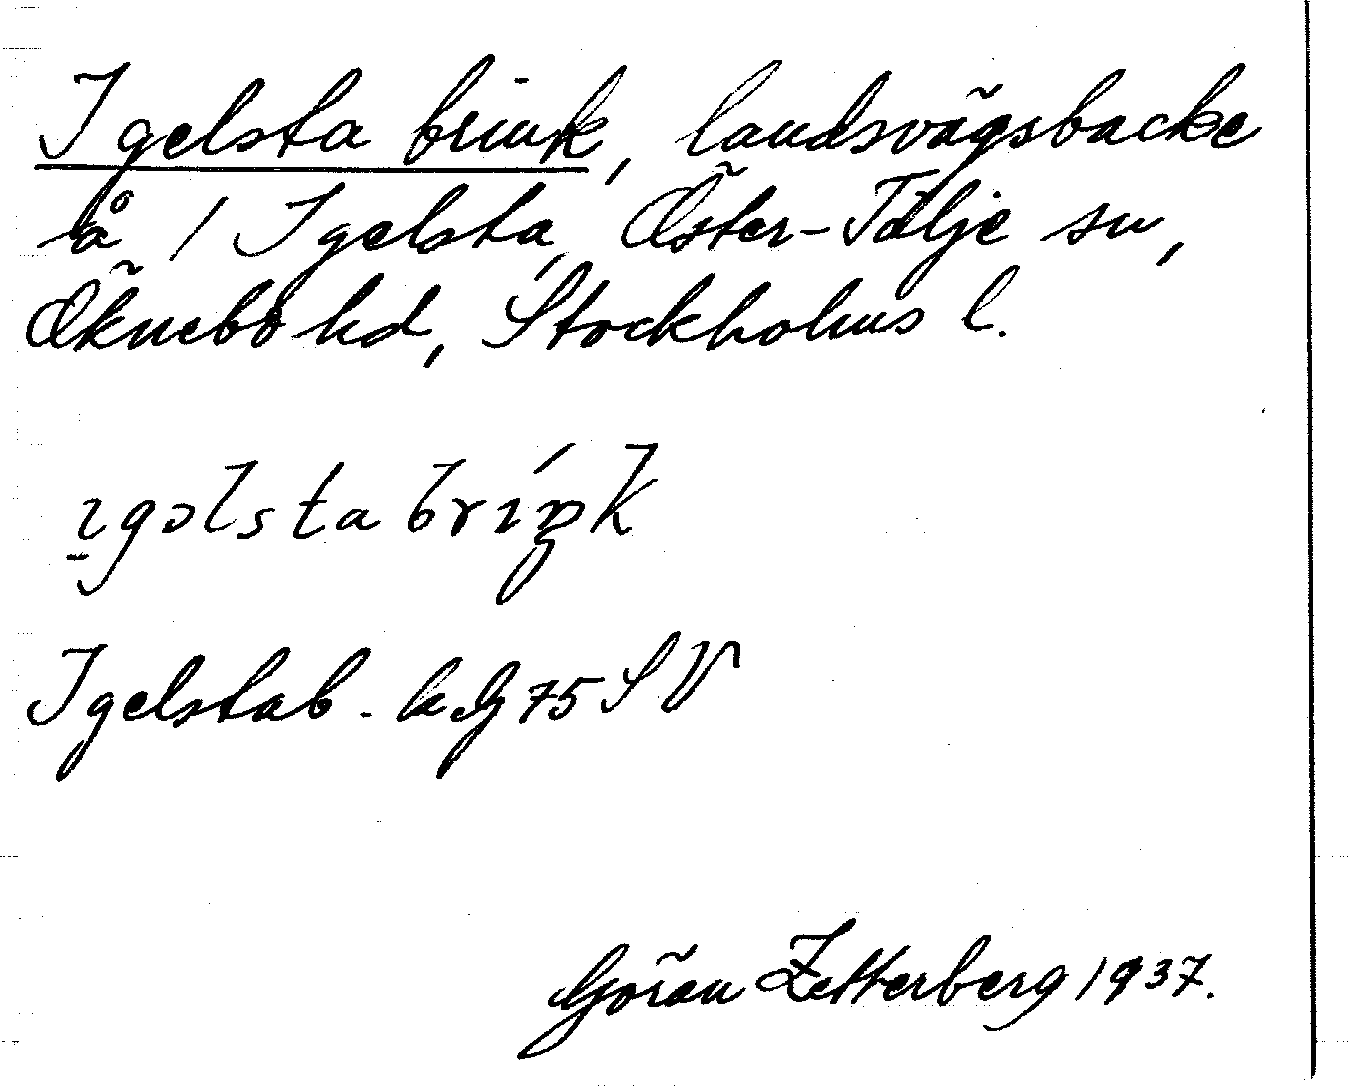 Igelsta brink, landsvägsbacke
å / Igelsta, Öster-Tälje sn,
Öknebo hd, Stockholms l.
ɪgəlsta bríŋk
Igelstab. 75 SV
Göran Zetterberg 1937.